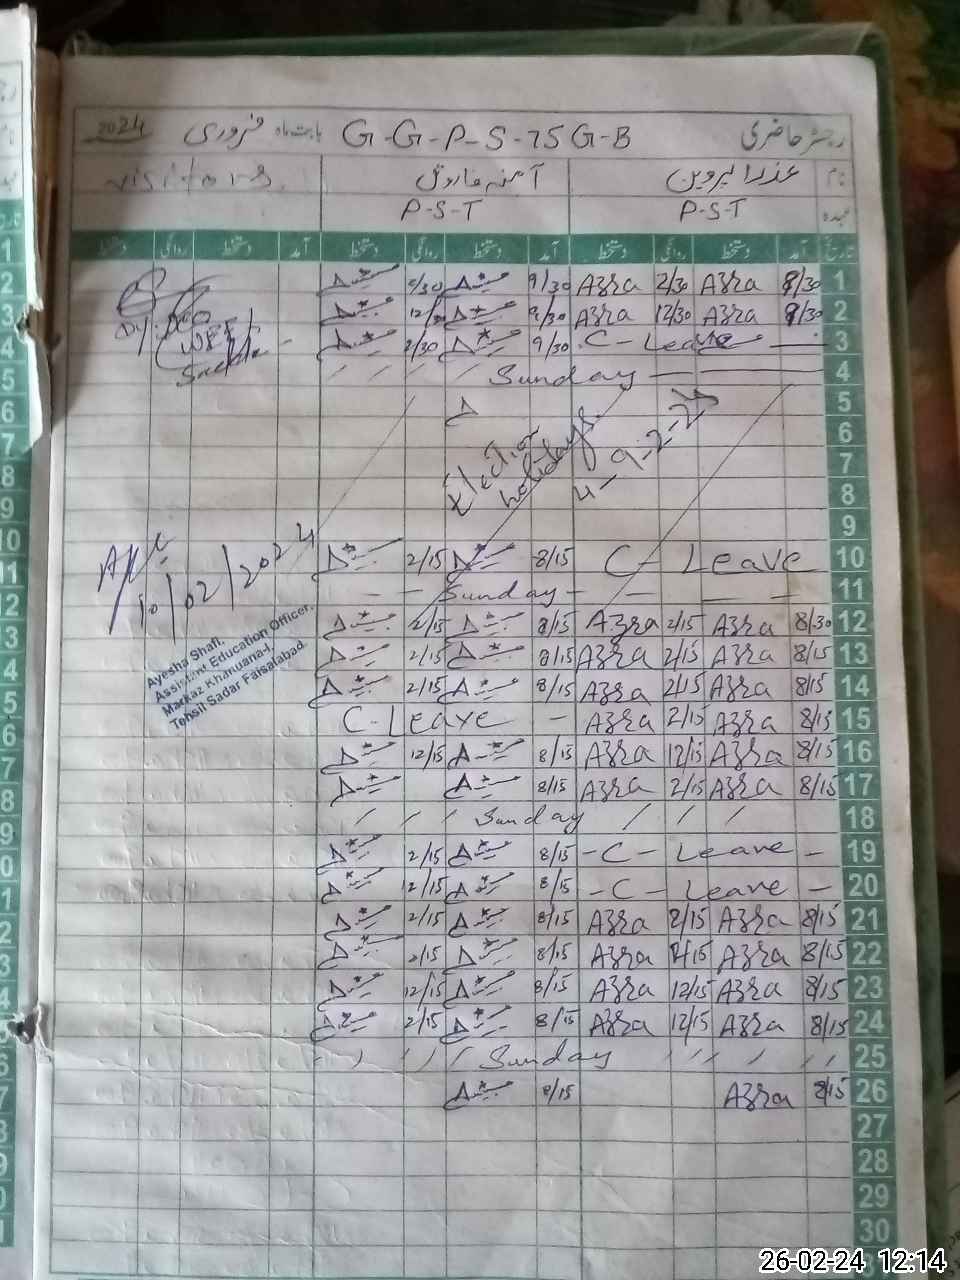 رجسٹر حاضری G-G-P-S-75 G-B بابت ماہ فروری 2024
نام عذرا پروین آمنہ فاروق visitors
عہدہ P-S-T P-S-T
تاریخ آمد دستخط روانگی دستخط آمد دستخط روانگی دستخط آمد دستخط روانگی دستخط
1 8/30 Azra 2/30 Azra 9/30 2/30
2 8/30 Azra 12/30 Azra 9/30 12/30
3 C-Leave 9/30 2/30
4 Sunday
5
6
7
8
9
Election holidays. 4-9-2-24
10 C-Leave 8/15 2/15
11 Sunday
12 8/30 Azra 2/15 Azra 8/15 2/15
13 8/15 Azra 2/15 Azra 8/15 2/15
14 8/15 Azra 2/15 Azra 8/15 2/15
15 8/15 Azra 2/15 Azra - C-Leave
16 8/15 Azra 12/15 Azra 8/15 12/15
17 8/15 Azra 2/15 Azra 8/15
18 Sunday
19 -C-Leave- 8/15 2/15
20 -C-Leave- 8/15 12/15
21 8/15 Azra 2/15 Azra 8/15 2/15
22 8/15 Azra 2/15 Azra 8/15 2/15
23 8/15 Azra 12/15 Azra 8/15 12/15
24 8/15 Azra 12/15 Azra 8/15 2/15
25 Sunday
26 8/15 Azra 8/15
27
28
29
30
Dy. DEO
10/02/2024
Ayesha Shafi,
Assistant Education Officer,
Markaz Khanuana-I,
Tehsil Sadar Faisalabad
26-02-24 12:14